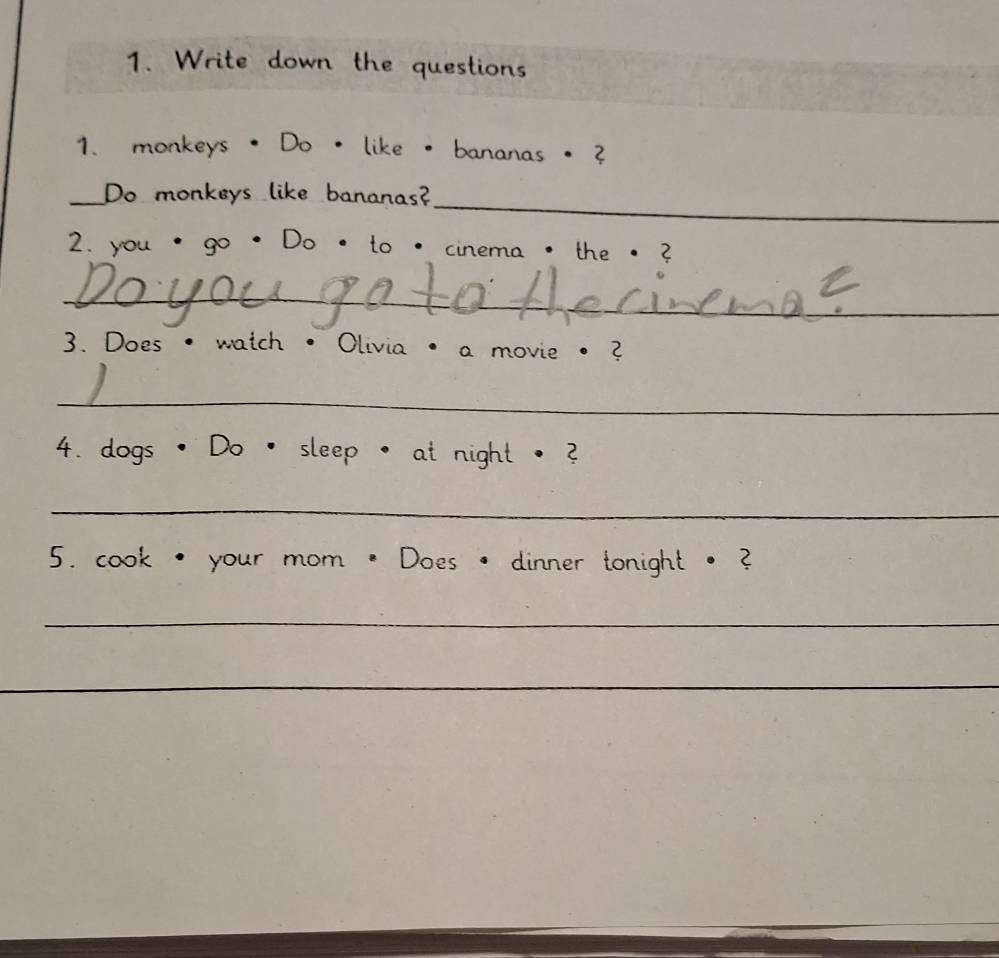 1. Write down the questions
1. monkeys • Do • like • bananas • ?
Do monkeys like bananas?
2. you • go • Do • to • cinema • the • ?
Do you go to the cinema?
3. Does • watch • Olivia • a movie • ?
4. dogs • Do • sleep • at night • ?
5. cook • your mom • Does • dinner tonight • ?